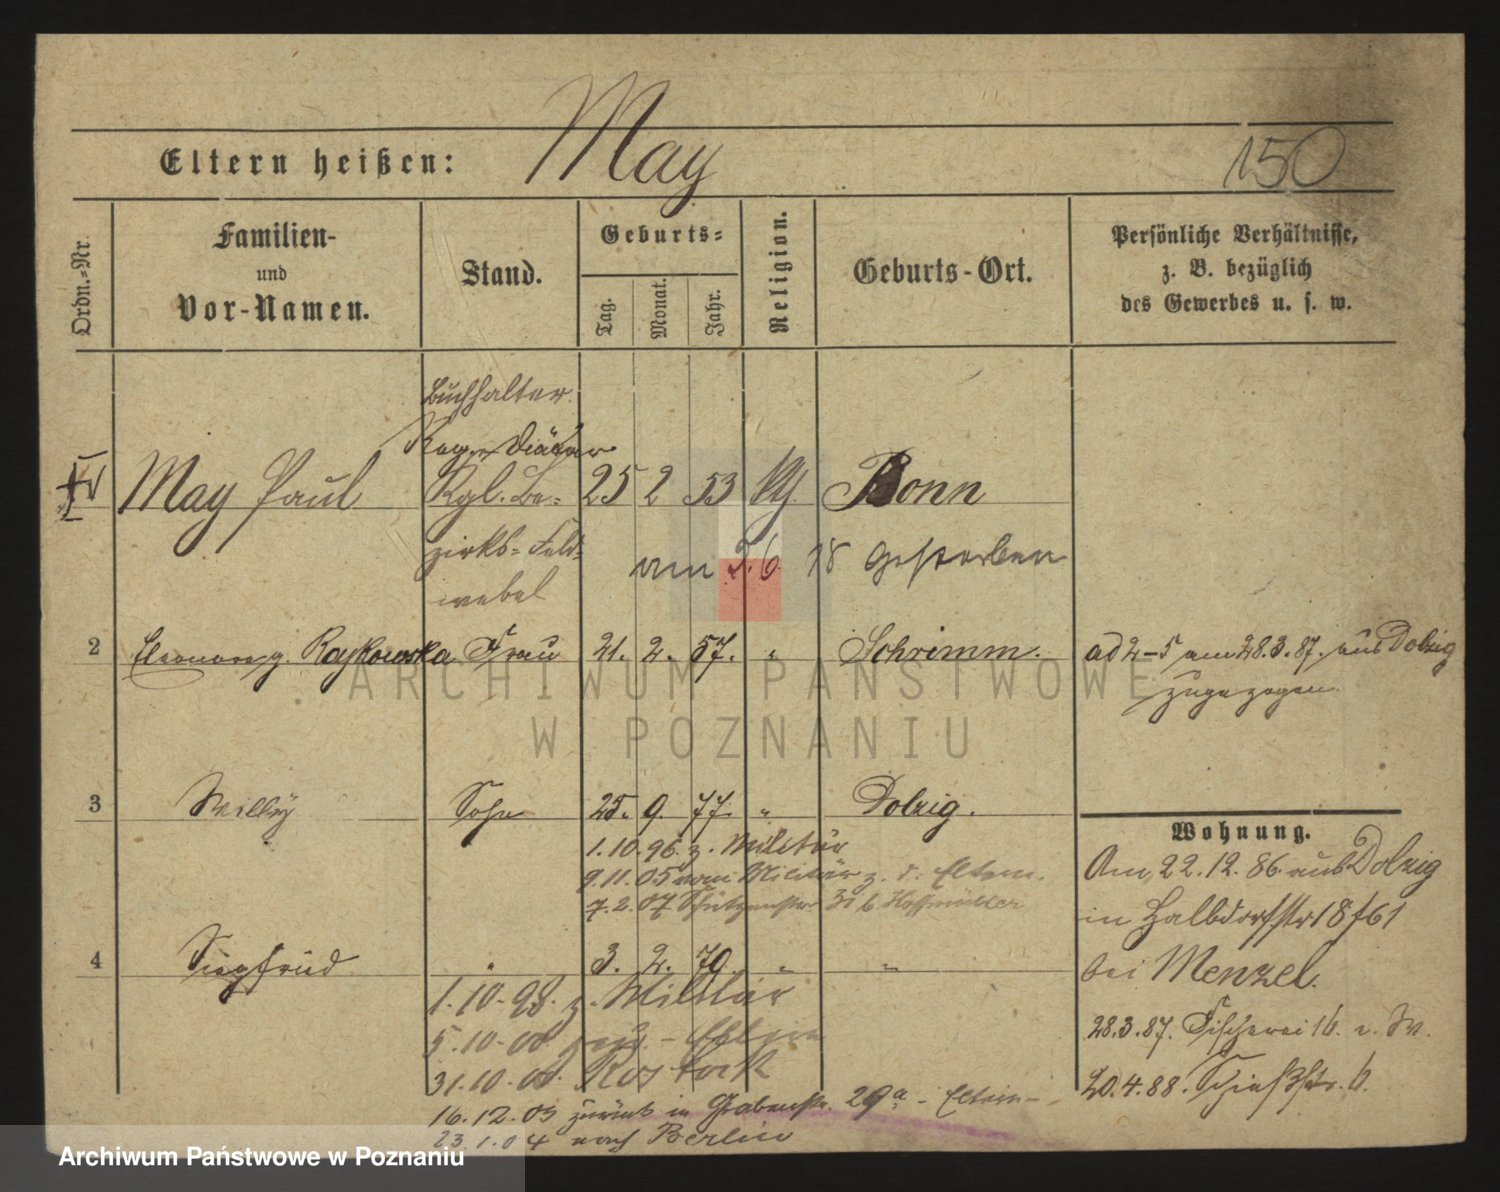 May
150
Eltern heißen:
Ordn.-Nr.
Familien-
und
Vor-Namen.
Stand.
Geburts-
Tag.
Monat.
Jahr.
Religion.
Geburts-Ort.
Persönliche Verhältnisse,
z. B. bezüglich
des Gewerbes u. s. w.
Buchhalter
Diätar
May Paul Kgl. Be- 25 2 53 Bonn
zirks-Feld-
webel
am 5.6. 18 gestorben
2 Eleonore g. Raykowska Frau 21. 2. 57. " Schrimm. ad 2-5 am 28.3.87. aus Dolzig
zugezogen
3 Willy Sohn 25. 9. 77. " Dolzig.
1.10.96 z. Militär
9.11.05 vom Militär z. d. Eltern.
7.2.07 Schützenstr 31 b. Hoffmüller
4 Siegfried " 3. 2. 79. " "
1.10.98. z. Militär
5.10.00. Eltern
31.10.00. Rostock
16.12.03 zurück in Grabenstr. 29a - Eltern -
23.1.04 nach Berlin
Wohnung.
Am 22.12.86. aus Dolzig
in Halbdorfstr 18
bei Menzel.
28.3.87. Fischerei 16. i. W.
20.4.88. Schießstr. 6.
ARCHIWUM PAŃSTWOWE
W POZNANIU
Archiwum Państwowe w Poznaniu